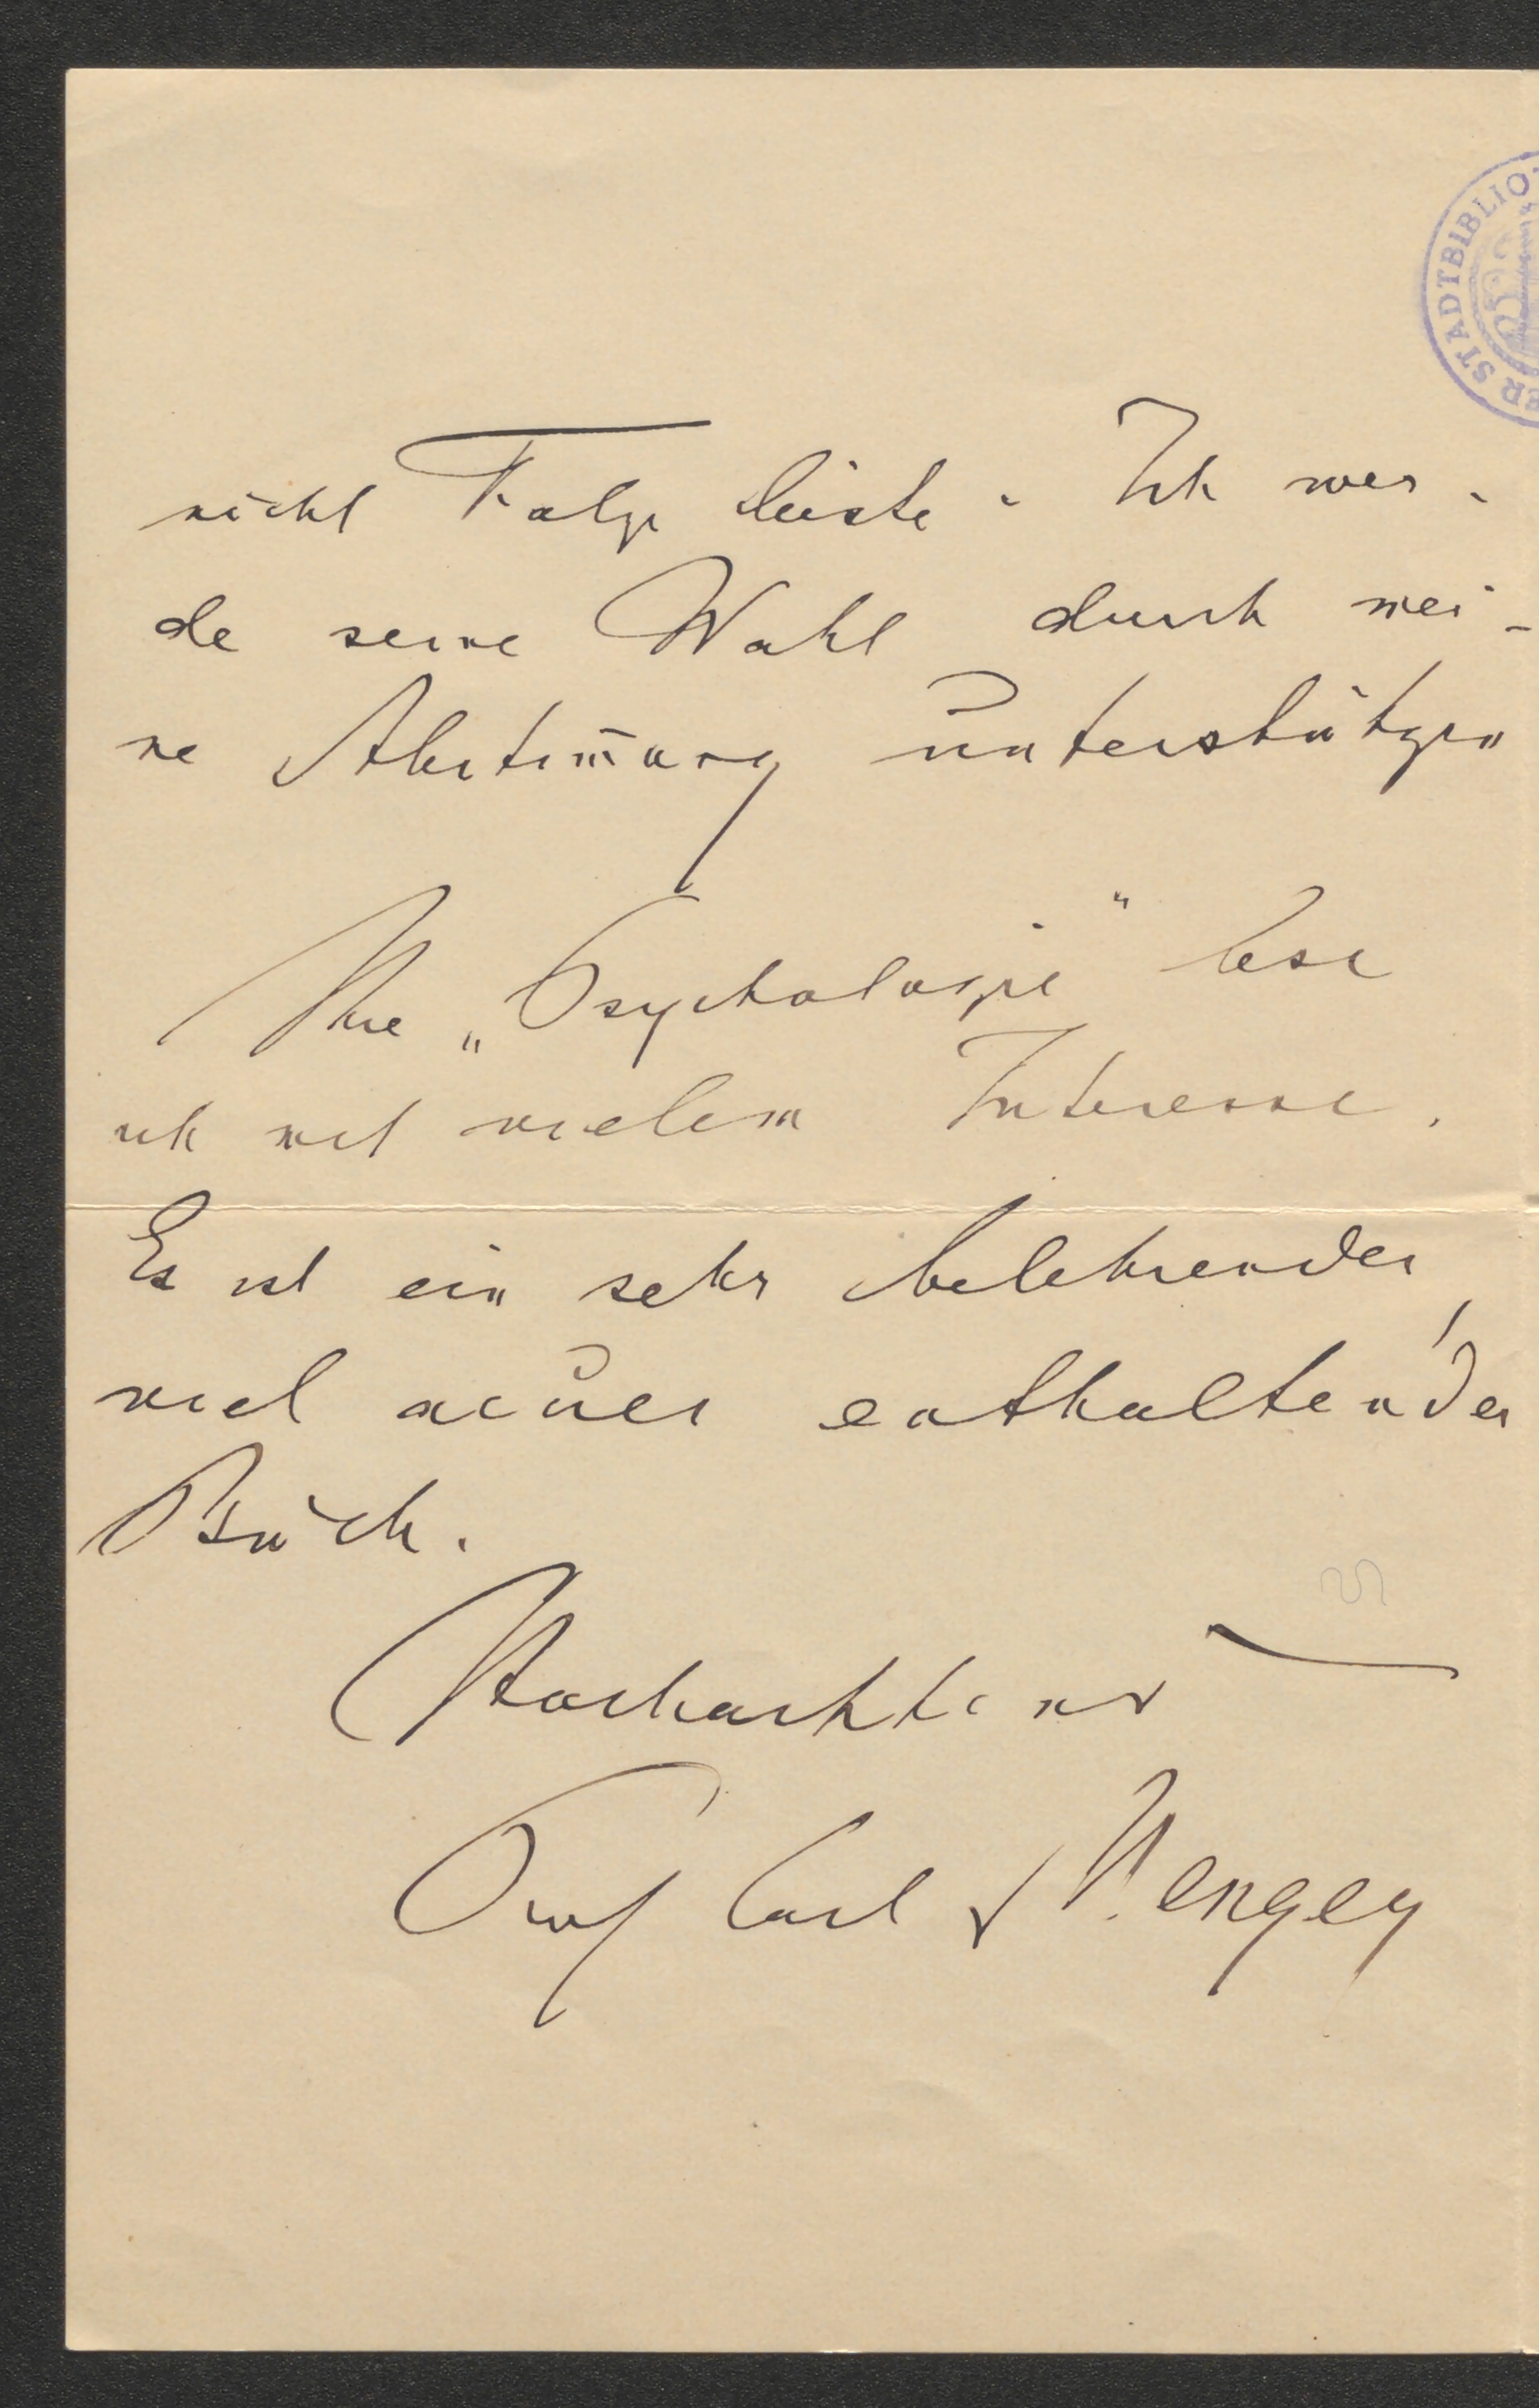 STADTBIBLIO
nicht Folge leiste. Ich wer-
de seine Wahl durch mei-
ne Abstim̄ung unterstützen
Ihre „Psychologie“ lese
ich mit vielem Interesse.
Es ist ein sehr belehrendes,
viel neues enthaltendes
Buch.
Hochachtend
Prof Carl v